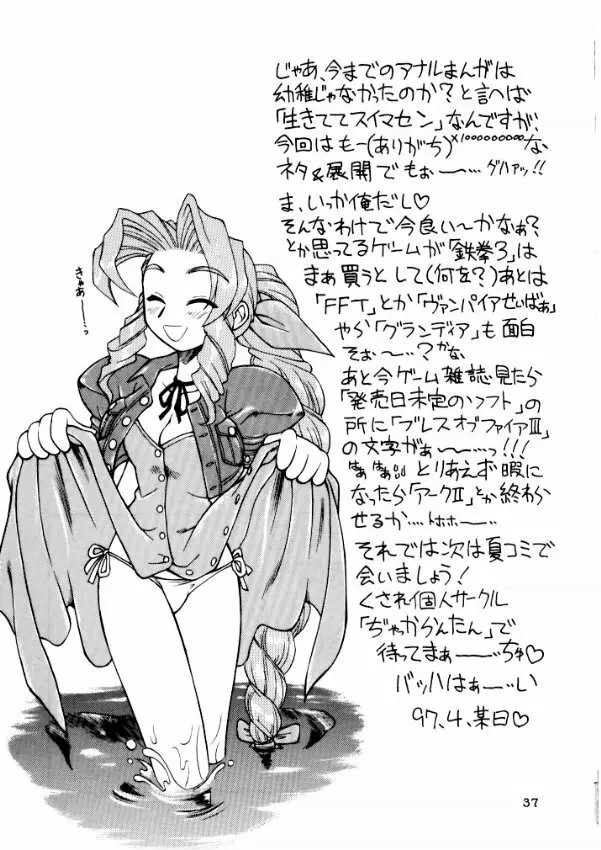 じゃあ、今までのアナルまんがは
幼稚じゃなかったのか?と言へば
「生きててスイマセン」なんですが、
今回はもー(ありがち)×10000000000な
ネタ&展開でもぉー〜…ゲハァッ!!
ま、いっか俺だし♡
そんなわけで今良い〜かなぁ?
とか思ってるゲームが「鉄拳3」は
まぁ買うとして(何を?)あとは
「FFT」とか「ヴァンパイアせいばぁ」
やら「グランディア」も面白
そぉ〜…?かな
あと今ゲーム雑誌見たら
「発売日未定のソフト」の
所に「ブレスオブファイアⅢ」
の文字がぁー〜っ!!!
はぁはぁ とりあえず暇に
なったら「アークⅡ」とか終わら
せるか…トホホー〜
それでは次は夏コミで
会いましょう!
くされ個人サークル
「ぢゃからんたん」で
待ってまぁー〜っちゅ♡
バッハはぁー〜い
97.4.某日♡
きゃあー〜っ
37